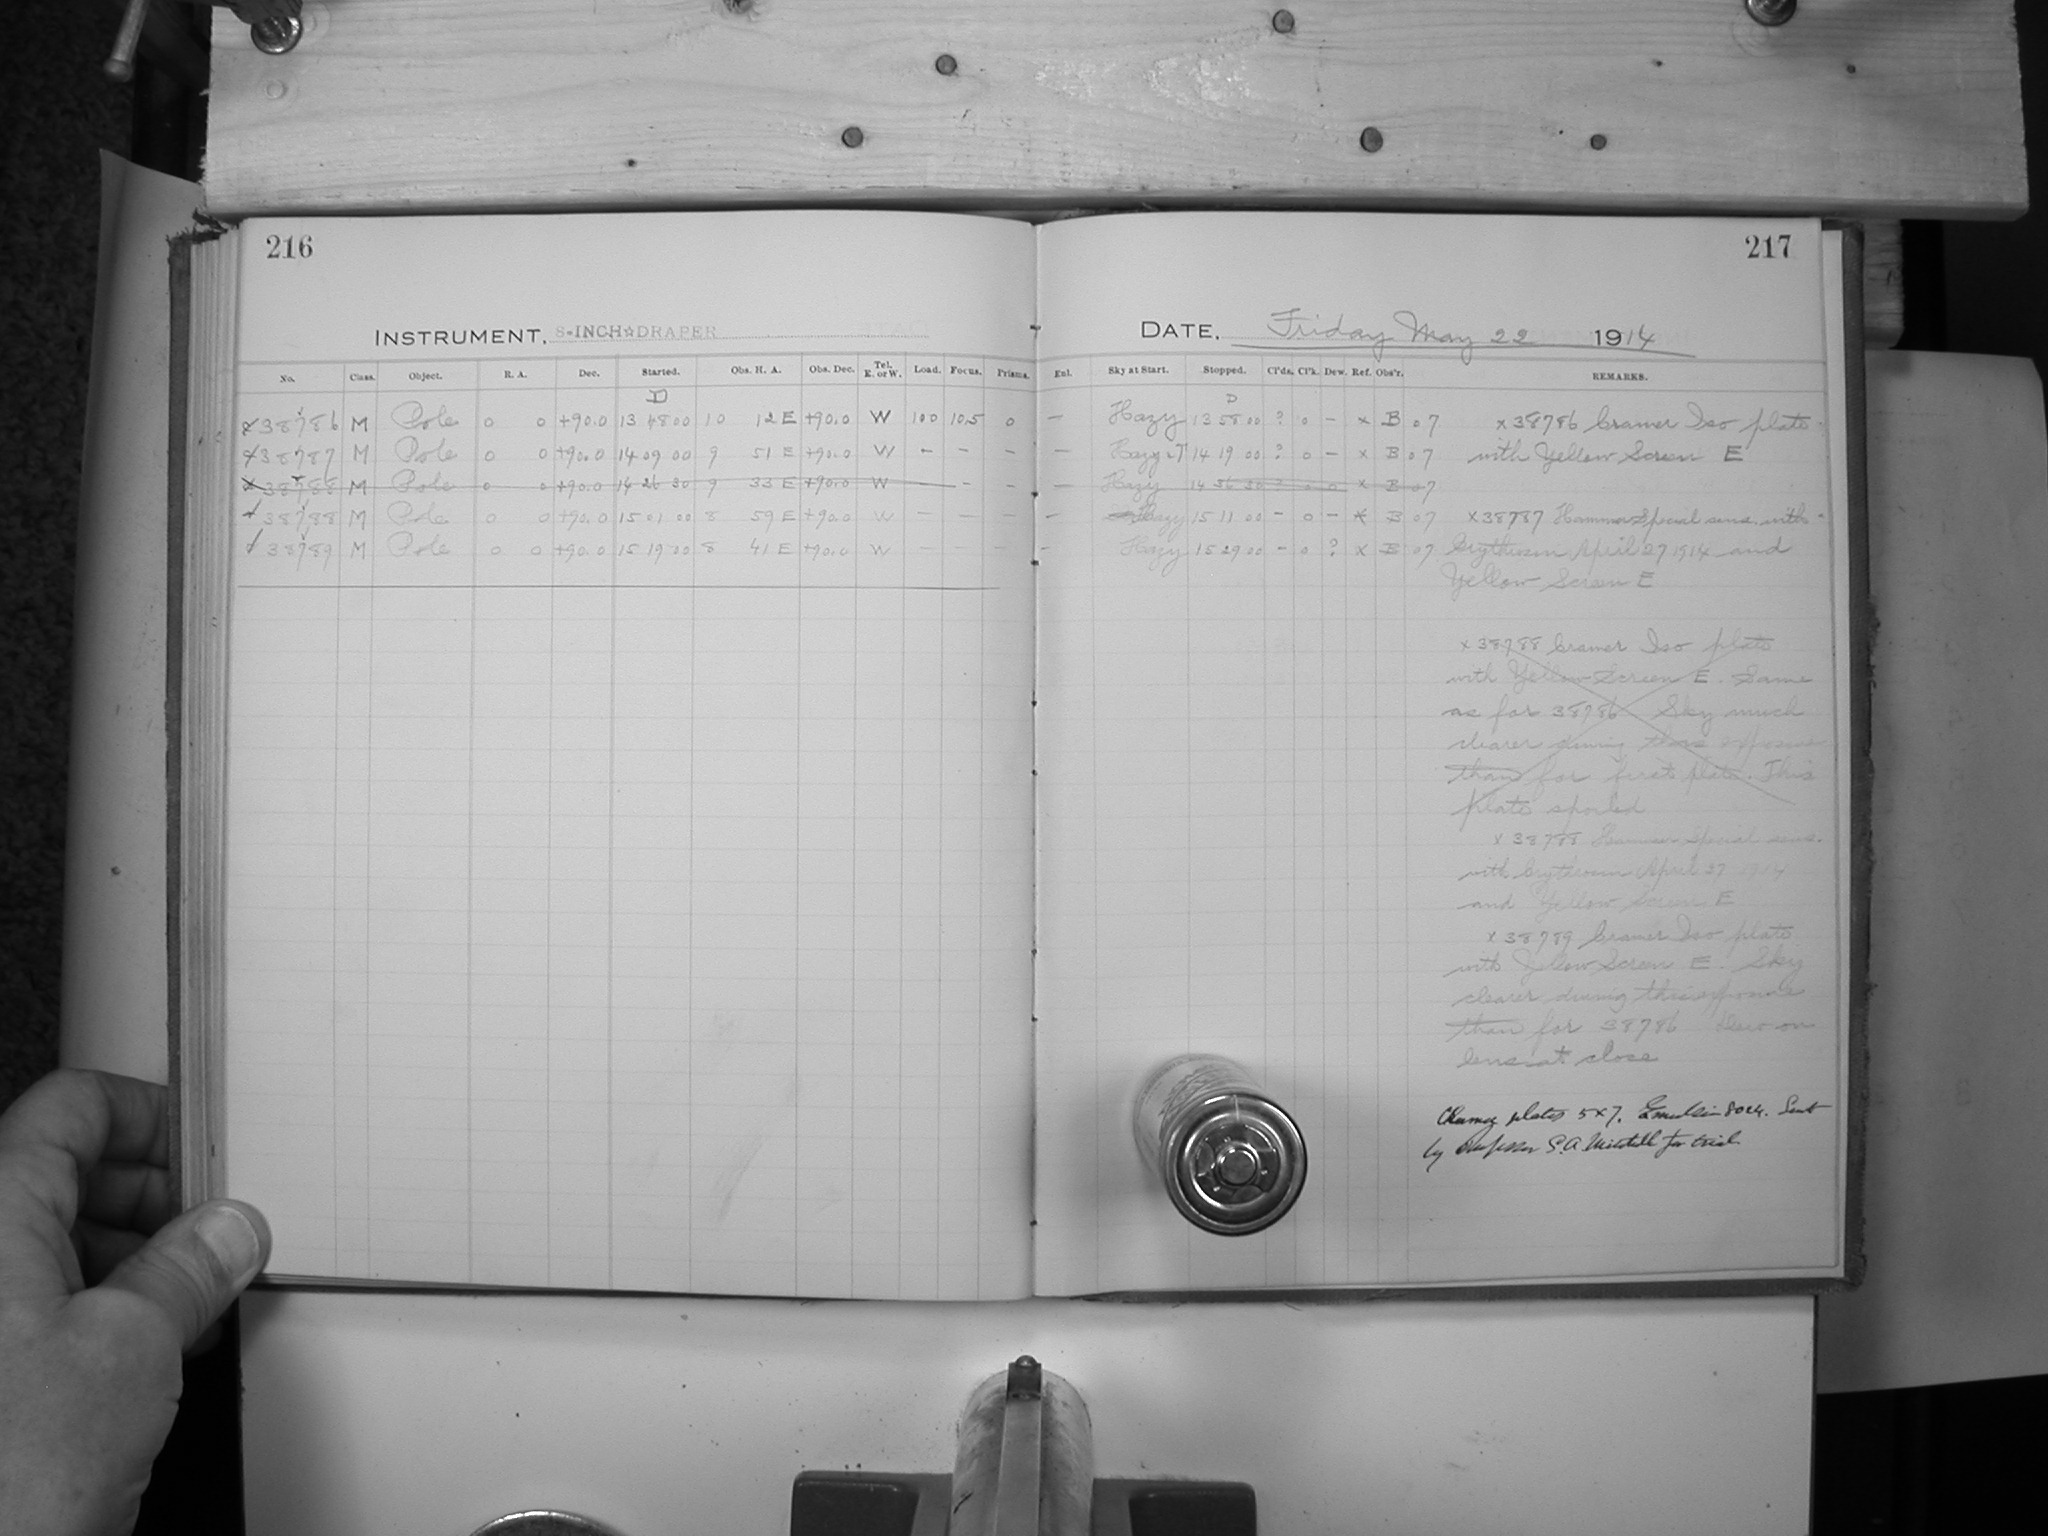 216
217
INSTRUMENT, 8-INCH☆DRAPER
DATE, Friday May 22 1914
No. Class. Object. R. A. Dec. Started. Obs. H. A. Obs. Dec. Tel. E. or W. Load. Focus. Prisms. Enl. Sky at Start. Stopped. Cl'ds. Cl'k. Dew. Ref. Obs'r. REMARKS.
D D
x38786 M Pole 0 0 +90.0 13 48 00 10 12 E +90.0 W 100 10.5 0 — Hazy 13 58 00 ? 0 — x B 07 x38786 Cramer Iso plate
x38787 M Pole 0 0 +90.0 14 09 00 9 51 E +90.0 W — — — — Hazy 14 19 00 ? 0 — x B 07 with Yellow Screen E
x38788 M Pole 0 0 +90.0 14 26 30 9 33 E +90.0 W — — — Hazy 14 36 30 ? 0 0 x B 07
x38788 M Pole 0 0 +90.0 15 01 00 8 59 E +90.0 W — — — — Hazy 15 11 00 — 0 — x B 07 x38787 Hammer Special sens. with
x38789 M Pole 0 0 +90.0 15 19 00 8 41 E +90.0 W — — — — Hazy 15 29 00 — 0 ? x B 07 Erythrosin April 27 1914 and
Yellow Screen E
x38788 Cramer Iso plate
with Yellow Screen E. Same
as for 38786 Sky much
clearer during this exposure
than for first plate. This
plate spoiled
x38788 Hammer Special sens.
with Erythrosin April 27 1914
and Yellow Screen E
x38789 Cramer Iso plate
with Yellow Screen E. Sky
clearer during this exposure
than for 38786 Dew on
lens at close
plates 5x7. Emulsion 8024. Sent
by Professor S.A. Mitchell for trial